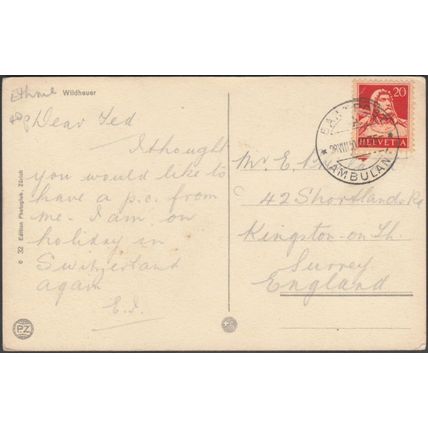 Wildheuer
Dear Ted
I thought
you would like to
have a p.c. from
me. I am on
holiday in
Switzerland
again
E.J.
6 32 Edition Photoglob, Zürich
PZ
20
HELVETIA
AMBULANT
Mr E.
42 Shortlands Rd
Kingston-on-Th.
Surrey
England